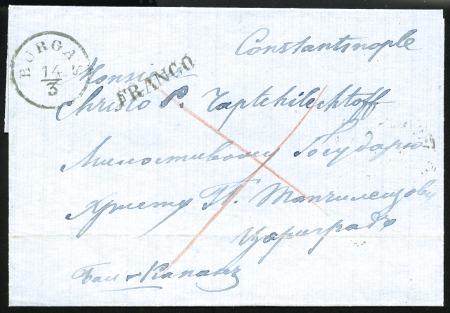 Constantinople
BURGAS
14/3
FRANCO
Monsieur
Christo P. Taptchilechtoff
Милостивому Государю
Христу П. Тапчилещову
Цариградъ